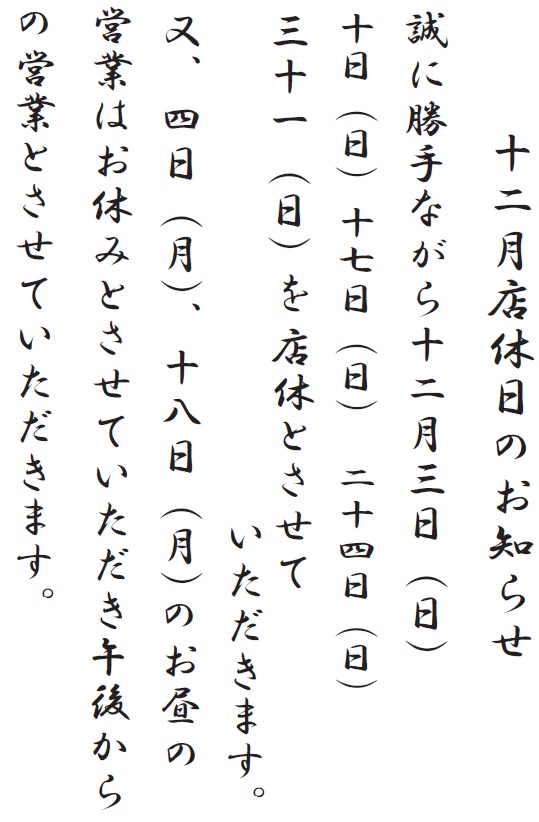 十二月店休日のお知らせ
誠に勝手ながら十二月三日（日）
十日（日）十七日（日）　二十四日（日）
三十一（日）を店休とさせて
いただきます。
又、四日（月）、十八日（月）のお昼の
営業はお休みとさせていただき午後から
の営業とさせていただきます。